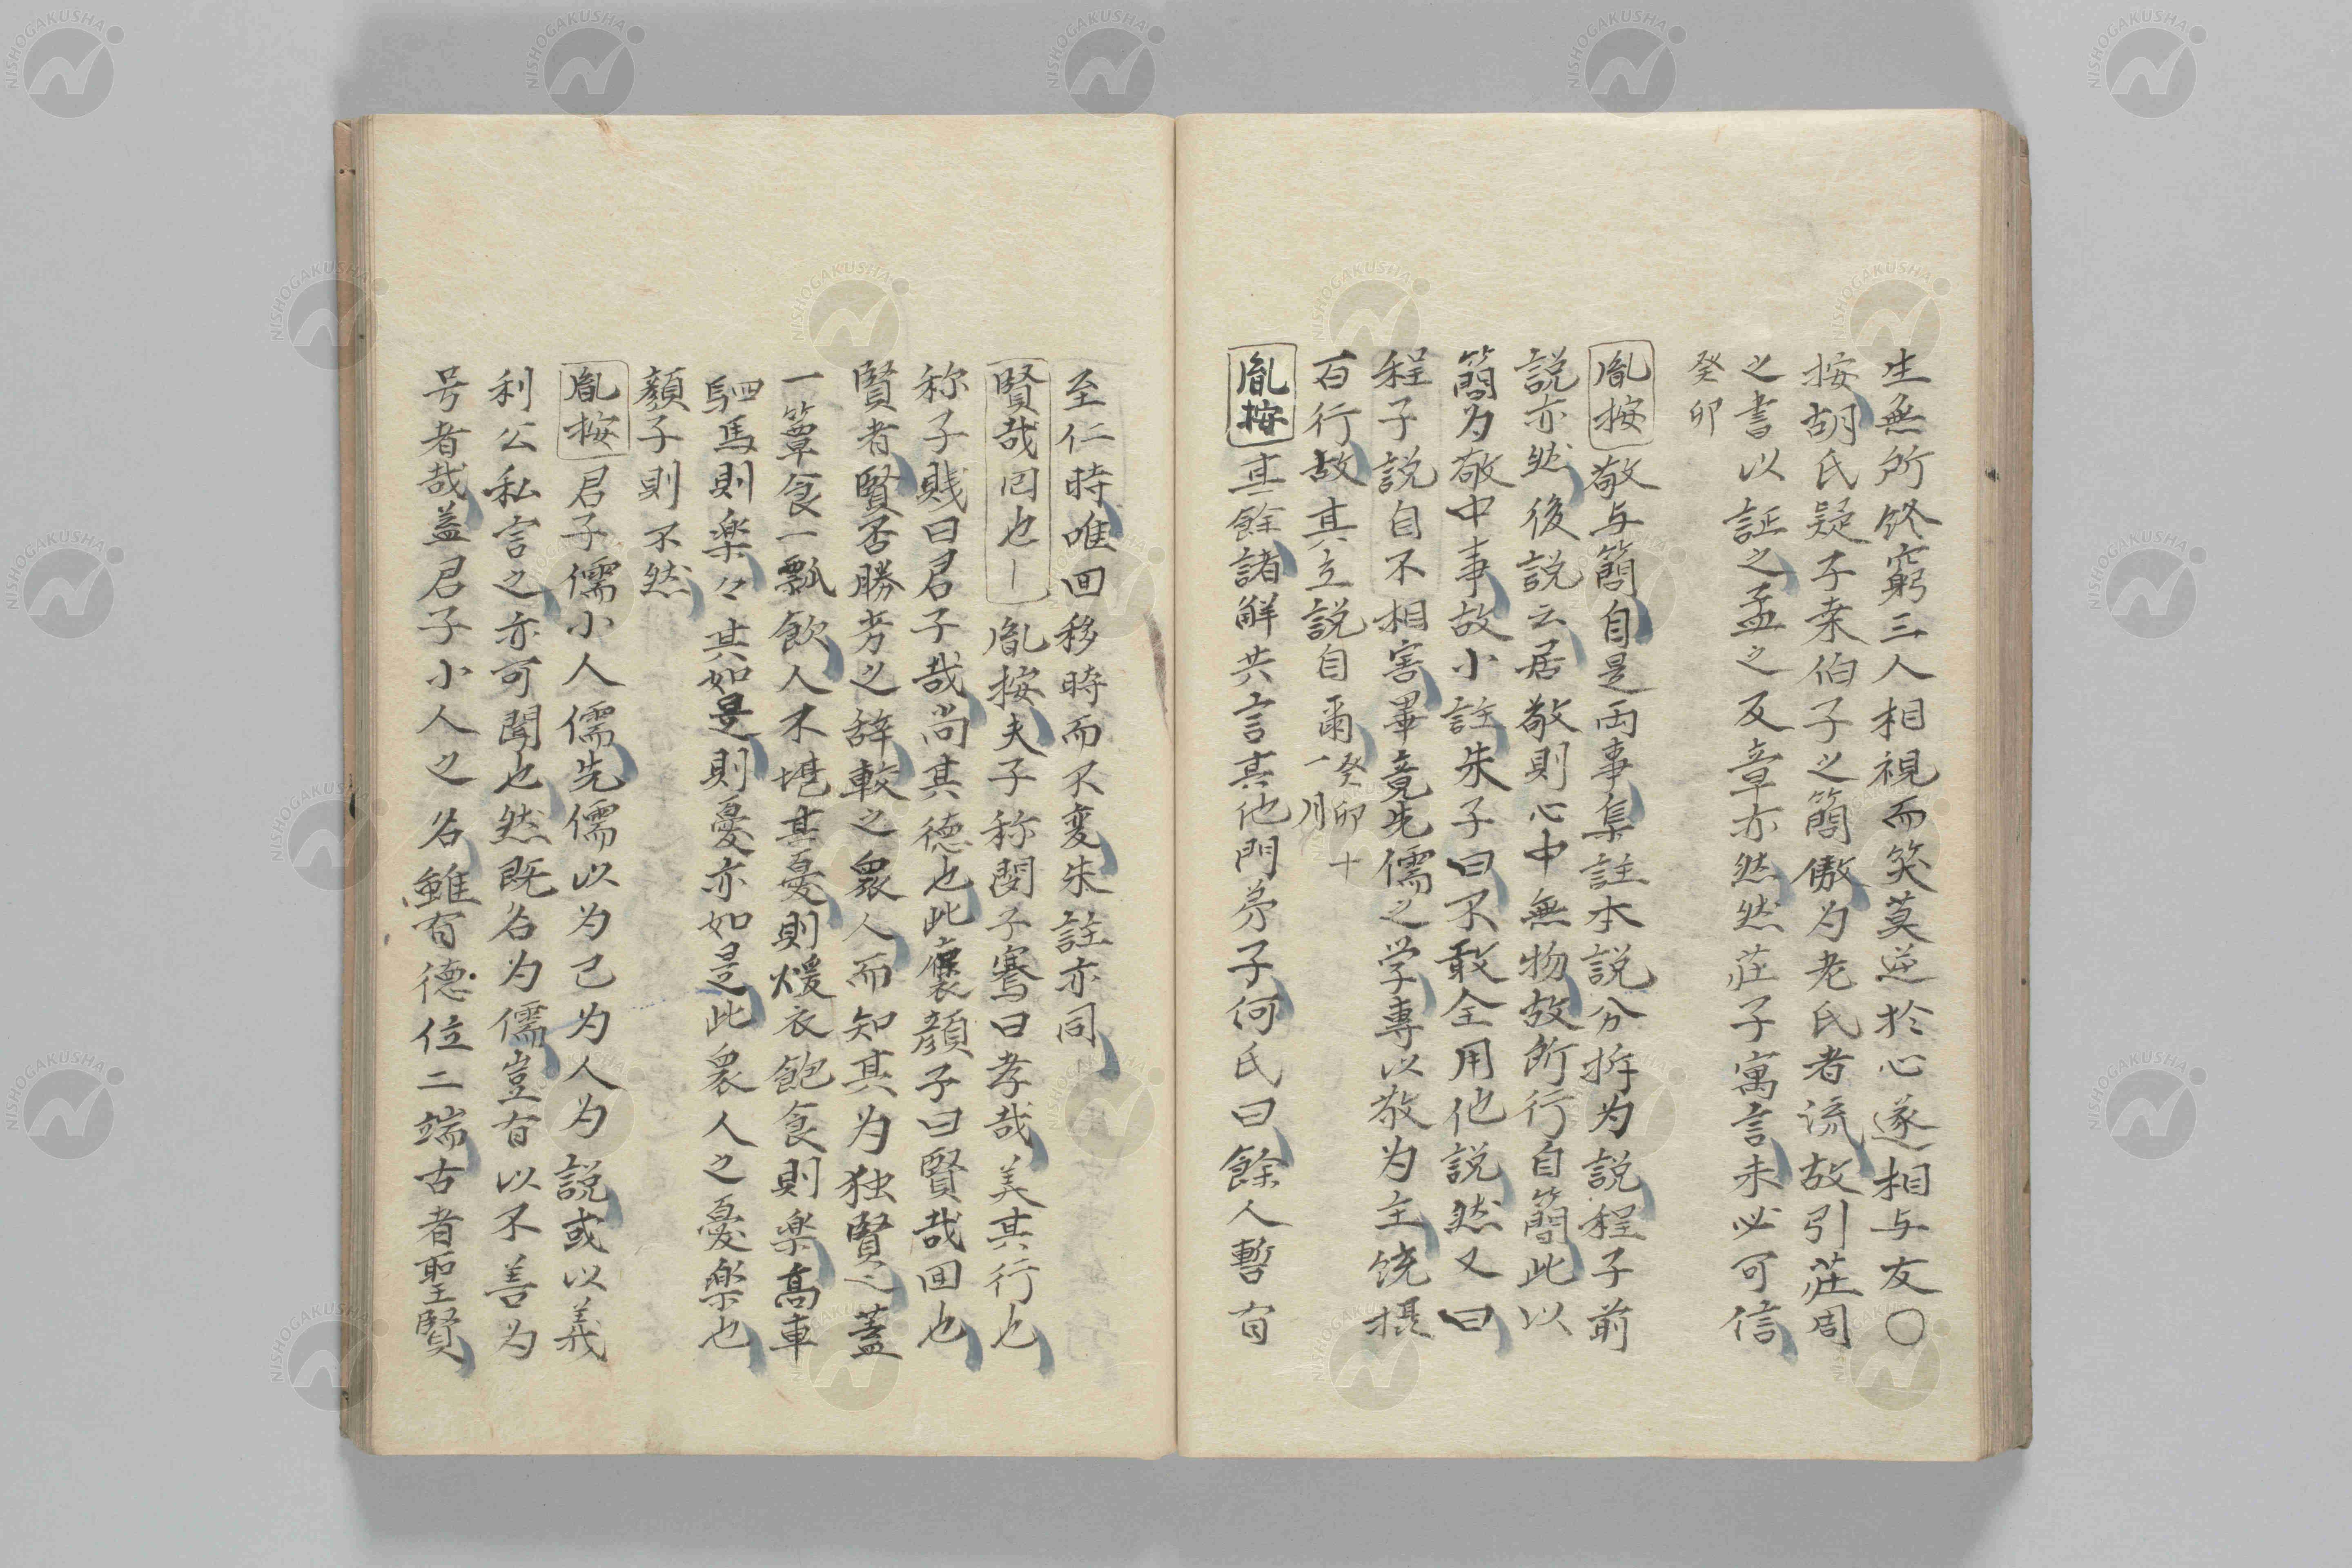 生無所終窮三人相視而笑莫逆於心遂相与友〇
按胡氏疑子桑伯子之簡傲为老氏者流故引荘周
之書以証之孟之反章亦然然荘子寓言未必可信
癸卯
胤按敬与簡自是両事集註本説分拆为説程子前
説亦然後説云居敬則心中無物故所行自簡此以
簡为敬中事故小註朱子曰不敢全用他説然又曰
程子説自不相害畢竟先儒之学専以敬为主饶摂
百行故其立説自爾癸卯十一月
胤按其餘諸解共言其他門弟子何氏曰餘人暫有
至仁時唯回移時而不変朱註亦同
賢哉回也｜胤按夫子称閔子騫曰孝哉美其行也
称子賎曰君子哉尚其徳也此褒顔子曰賢哉回也
賢者賢否勝劣之辞較之衆人而知其为独賢之蓋
一簞食一瓢飲人不堪其憂則煖衣飽食則楽高車
駟馬則楽々其如是則憂亦如是此衆人之憂楽也
顔子則不然
胤按君子儒小人儒先儒以为己为人为説或以義
利公私言之亦可聞也然既名为儒豈有以不善为
号者哉蓋君子小人之名雖有徳位二端古者聖賢
NISHOGAKUSHA